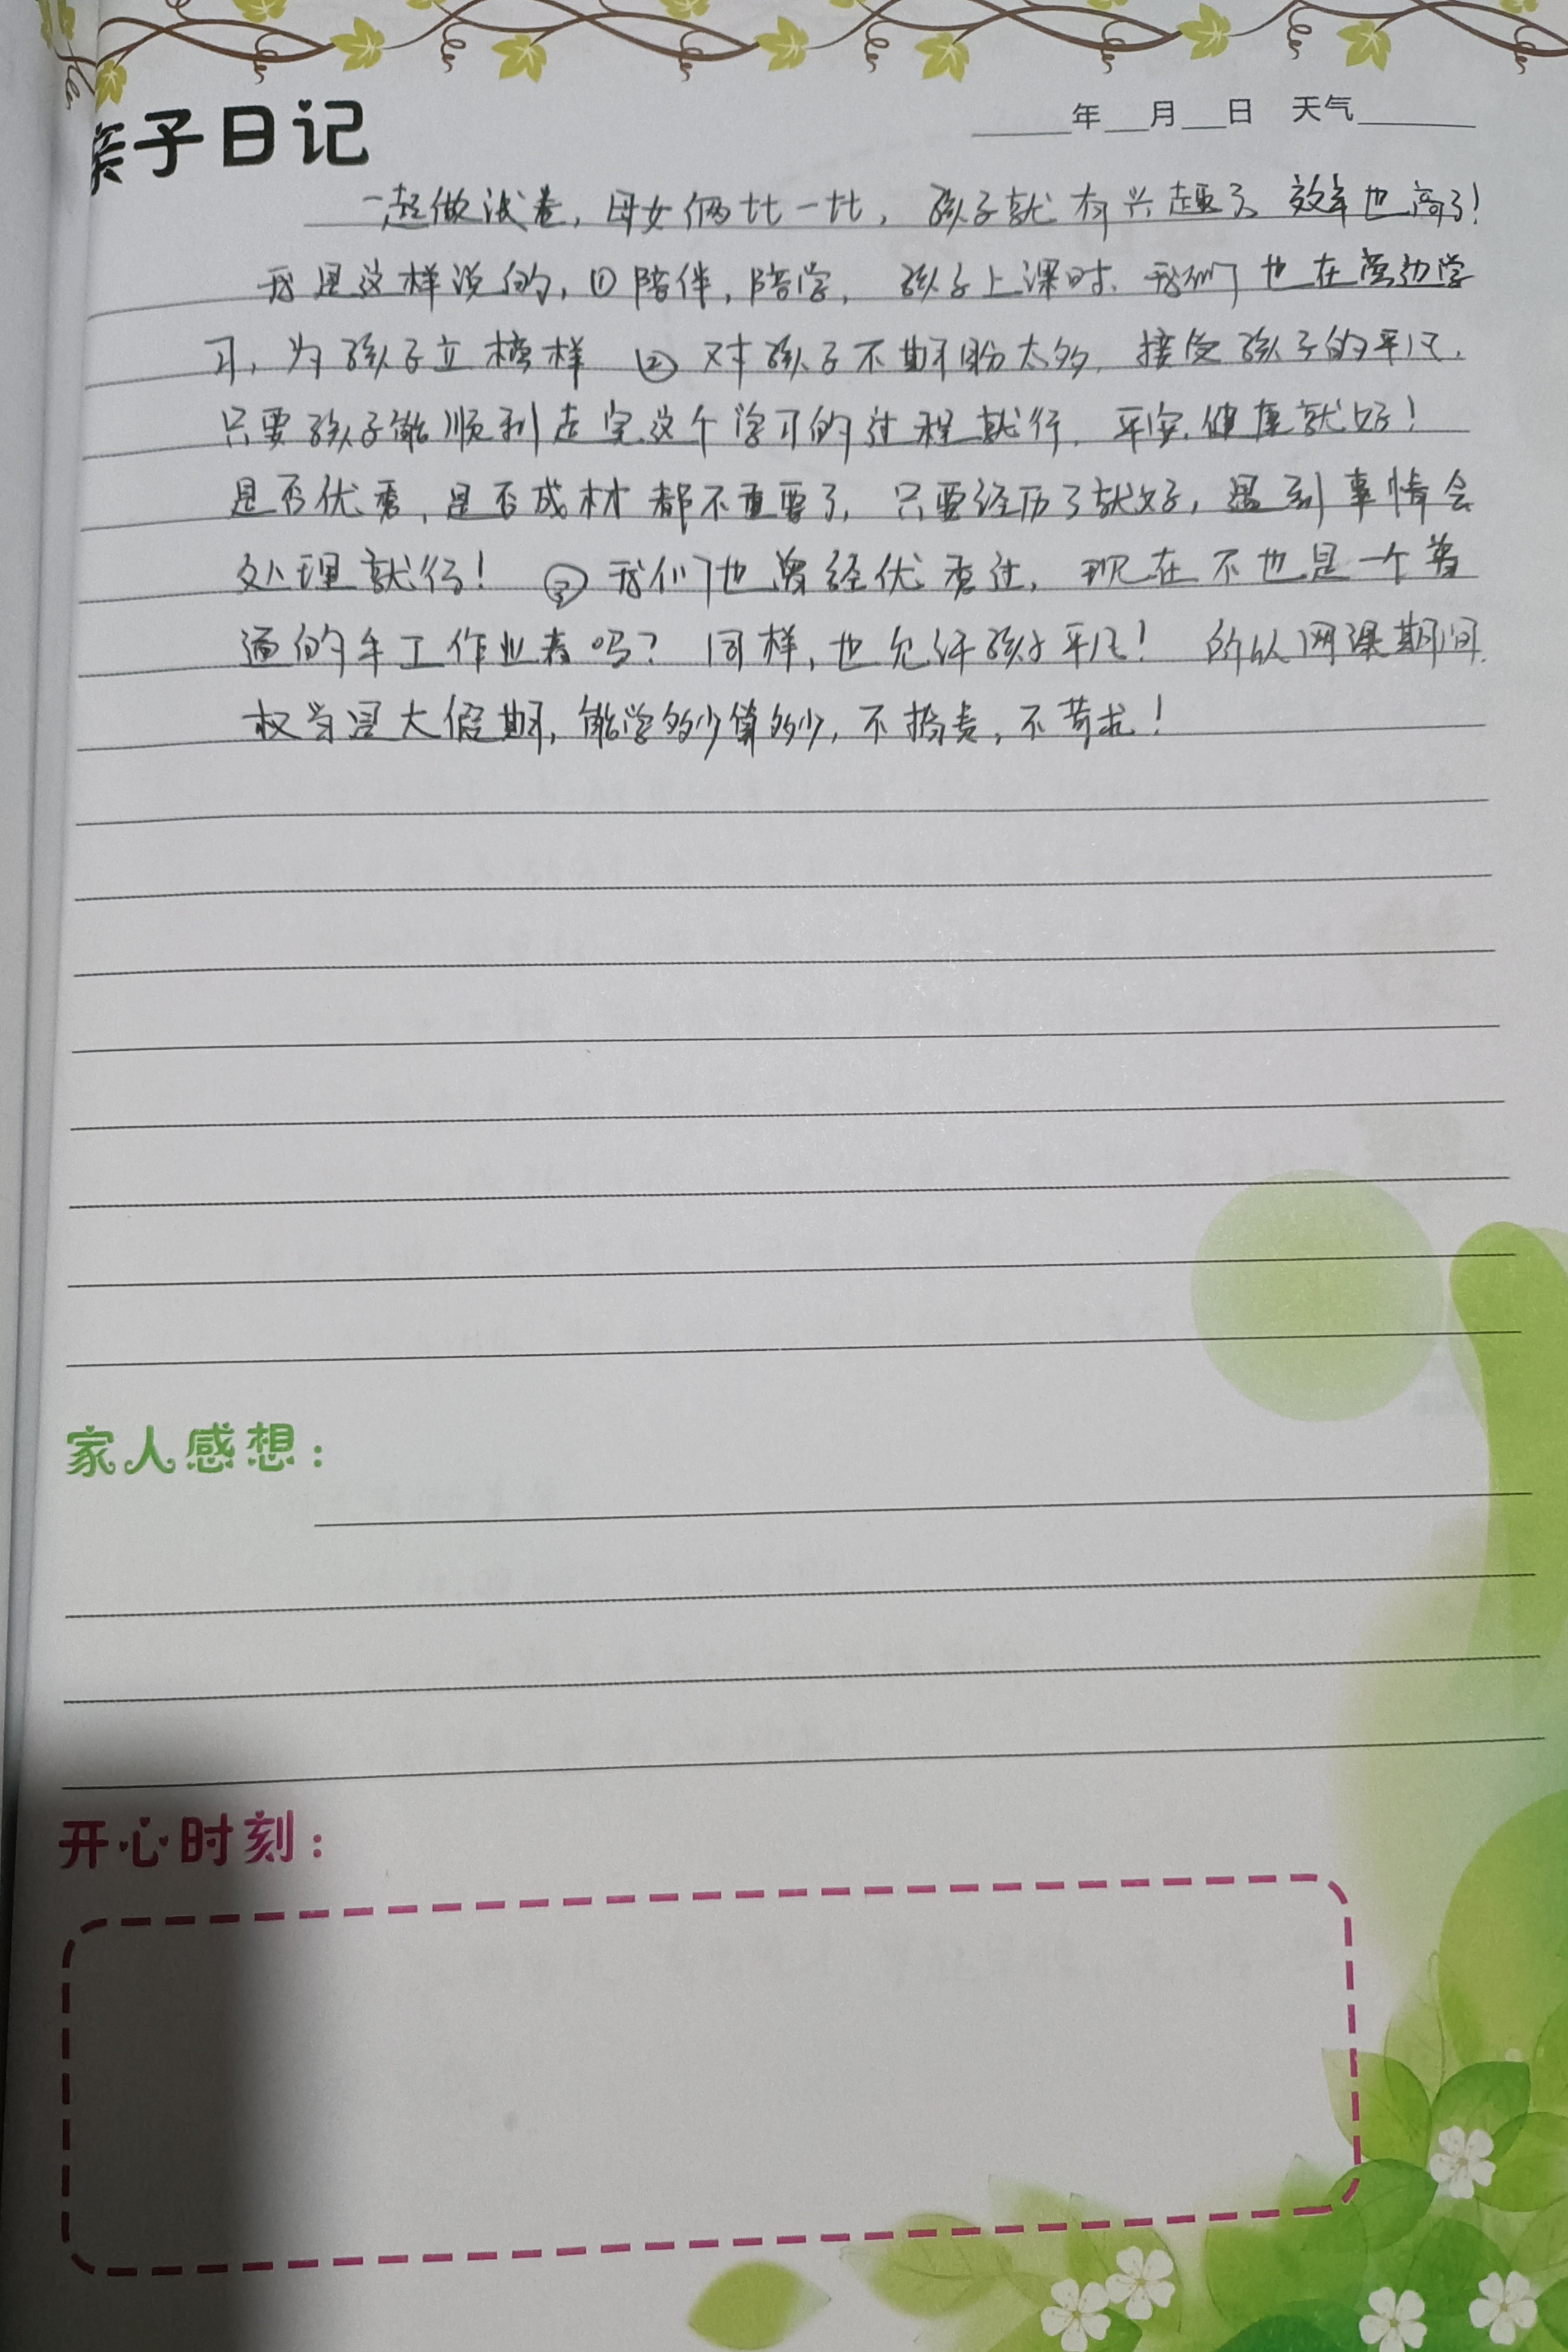 亲子日记
年 月 日 天气
一起做试卷，母女俩比一比，孩子就有兴趣了，效率也高了！
我是这样说的，①陪伴，陪学，孩子上课时，我们也在旁边学
习，为孩子立榜样 ②对孩子不期盼太多，接受孩子的平凡，
只要孩子能顺利走完这个学习的过程就行，平安，健康就好！
是否优秀，是否成材都不重要了，只要经历了就好，遇到事情会
处理就行！ ③我们也曾经优秀过，现在不也是一个普
通的手工作业者吗？同样，也允许孩子平凡！ 所以网课期间，
权当是大假期，能学多少算多少，不指责，不苛求！
家人感想：
开心时刻：